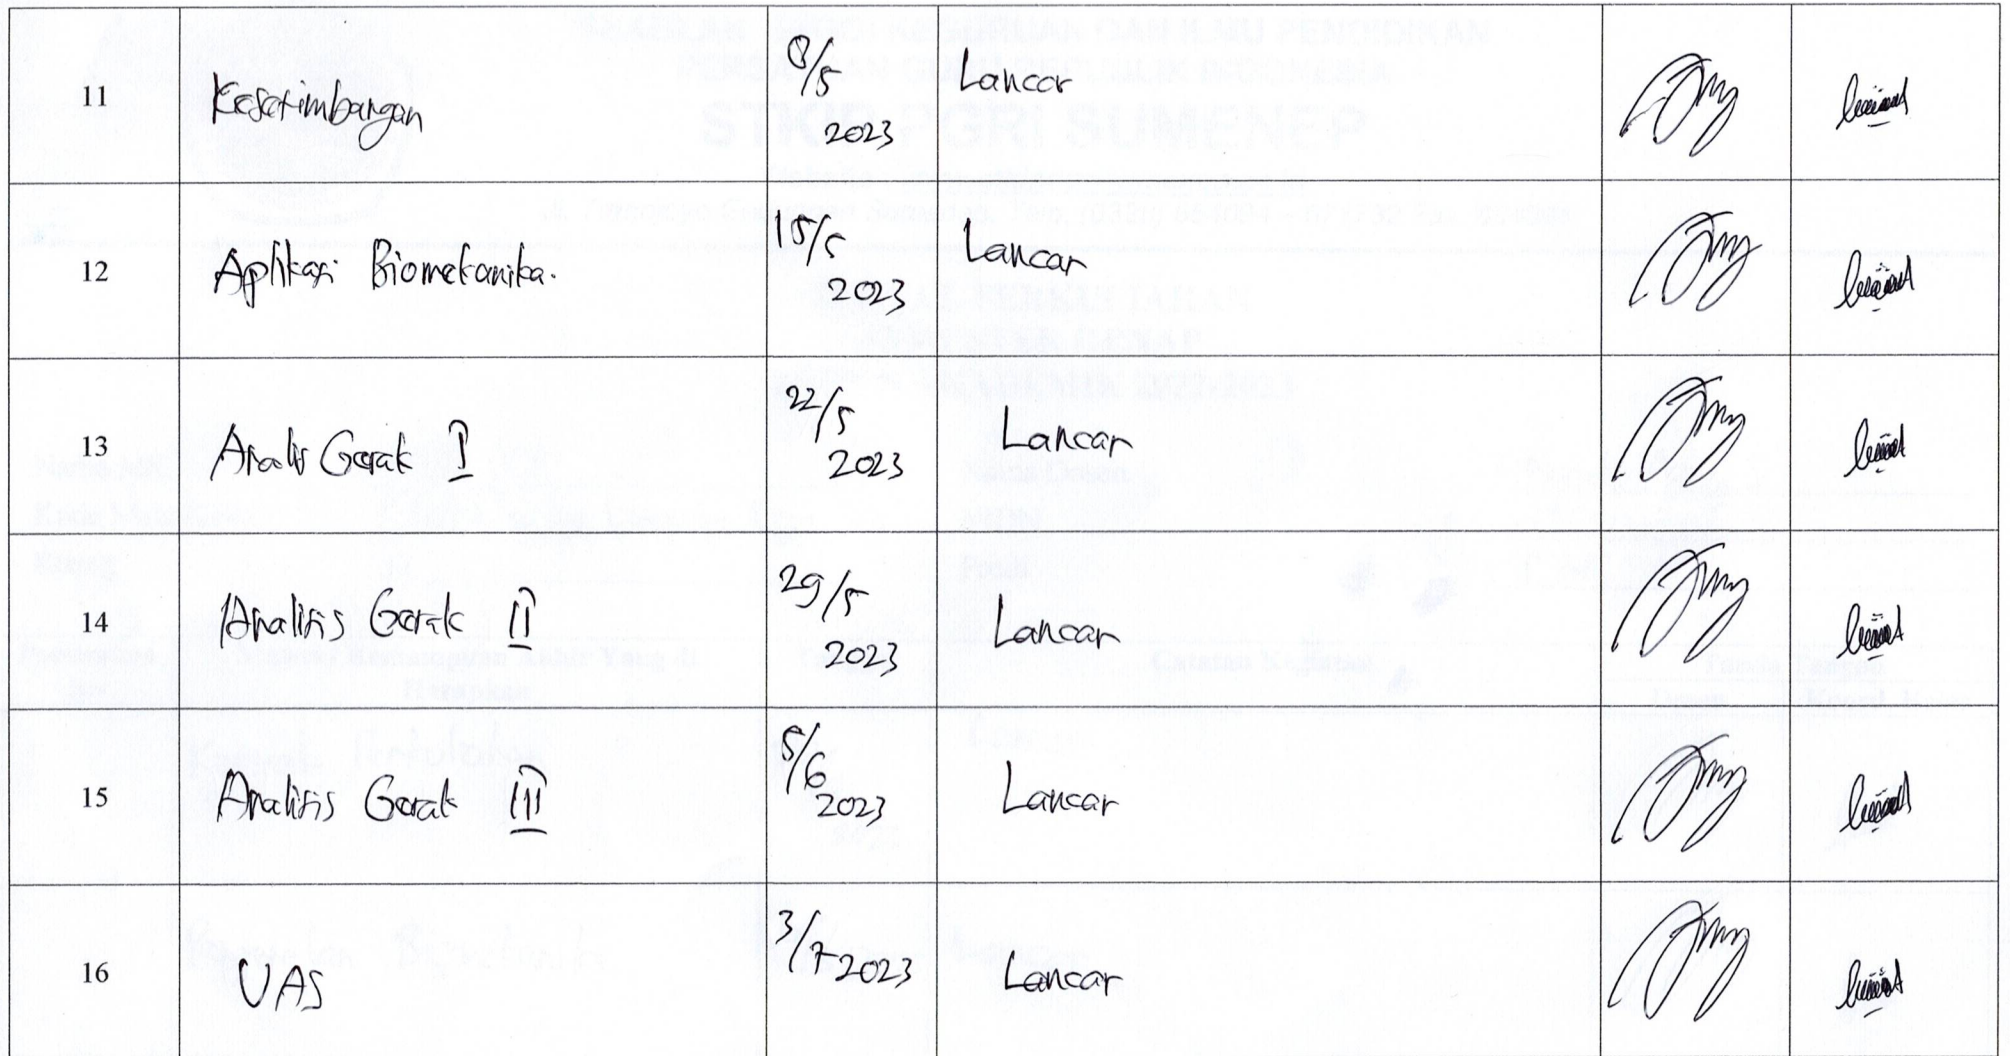 11 Kesetimbangan 8/5 2023 Lancar
12 Aplikasi Biomekanika. 15/5 2023 Lancar
13 Analis Gerak I 22/5 2023 Lancar
14 Analisis Gerak II 29/5 2023 Lancar
15 Analisis Gerak III 5/6 2023 Lancar
16 UAS 3/7 2023 Lancar